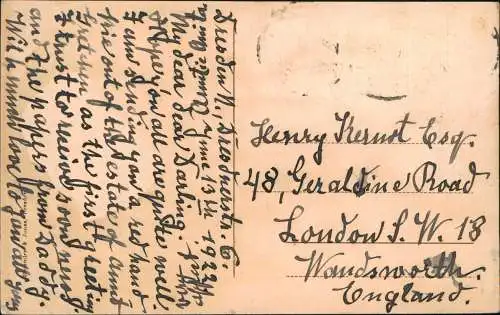 Dresden N., Dresdnerstr. 6
June 13th 1922
My dear dear Darling!
I hope you all are quite well.
I am sending you a red hand
out of the estate of aunt
Gretchen as the first greeting
I trust to receive soon news
and the papers from Daddy.
With much love to you and all yours
Henry Kernot Esq.
48, Geraldine Road
London S. W. 18
Wandsworth.
England.